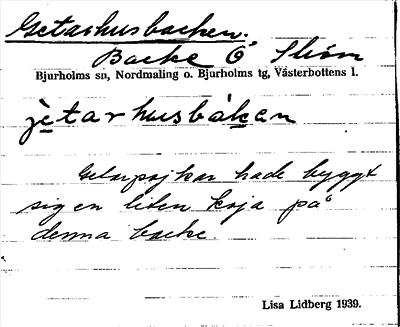 Getarhusbacken.
Backe Ö Ström
Bjurholms sn, Nordmaling o. Bjurholms tg, Västerbottens l.
jètarhusbáken
Getarpojkar hade byggt
sig en liten koja på
denna backe.
Lisa Lidberg 1939.